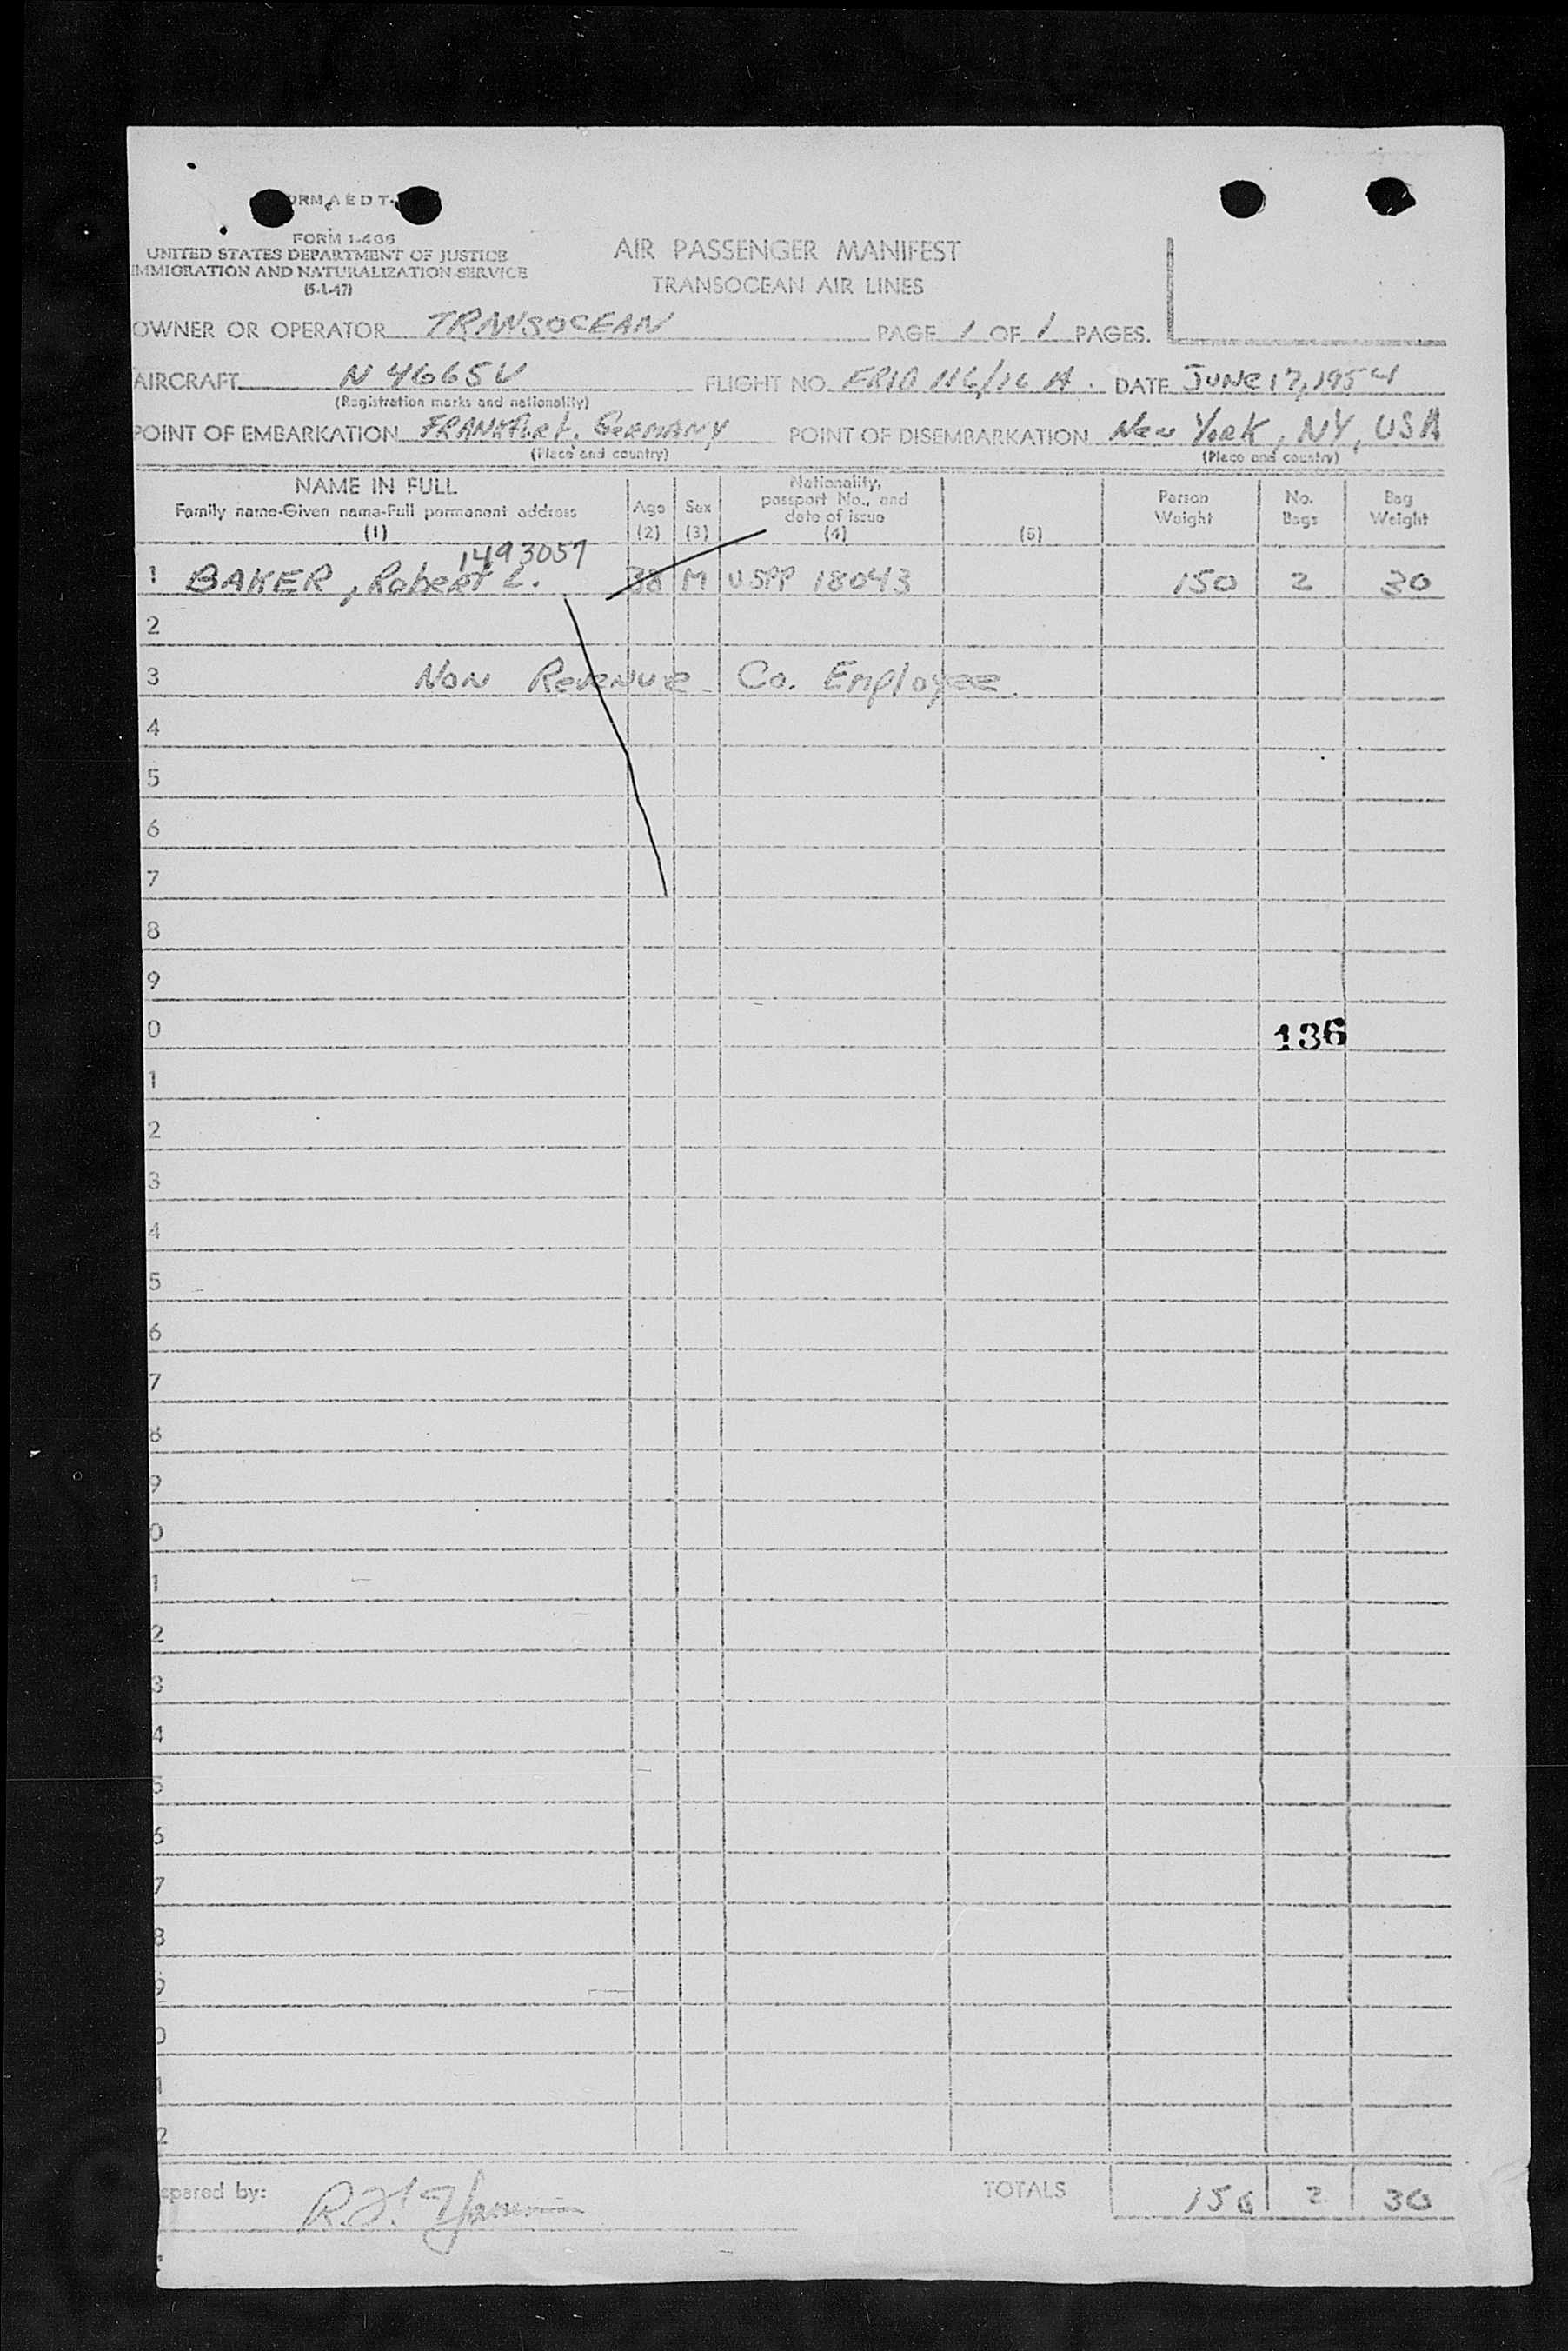 FORM A E D T-
FORM I-466
UNITED STATES DEPARTMENT OF JUSTICE
IMMIGRATION AND NATURALIZATION SERVICE
(5-1-47)
AIR PASSENGER MANIFEST
TRANSOCEAN AIR LINES
OWNER OR OPERATOR TRANSOCEAN PAGE 1 OF 1 PAGES.
AIRCRAFT N 4665V FLIGHT NO. 116/16 A. DATE JUNE 17, 1954
(Registration marks and nationality)
POINT OF EMBARKATION FRANKfurt, GERMANY POINT OF DISEMBARKATION New York, NY, USA
(Place and country) (Place and country)
NAME IN FULL
Family name-Given name-Full permanent address
(1)
Age
(2)
Sex
(3)
Nationality,
passport No., and
date of issue
(4)
(5)
Person
Weight
No.
Bags
Bag
Weight
1493057
1 BAKER, Robert L. 38 M USPP 18043 150 2 30
2
3 Non Revenue Co. Employee.
4
5
6
7
8
9
0 136
1
2
3
4
5
6
7
8
9
0
1
2
3
4
5
6
7
8
9
0
1
2
epared by: TOTALS 150 2 30